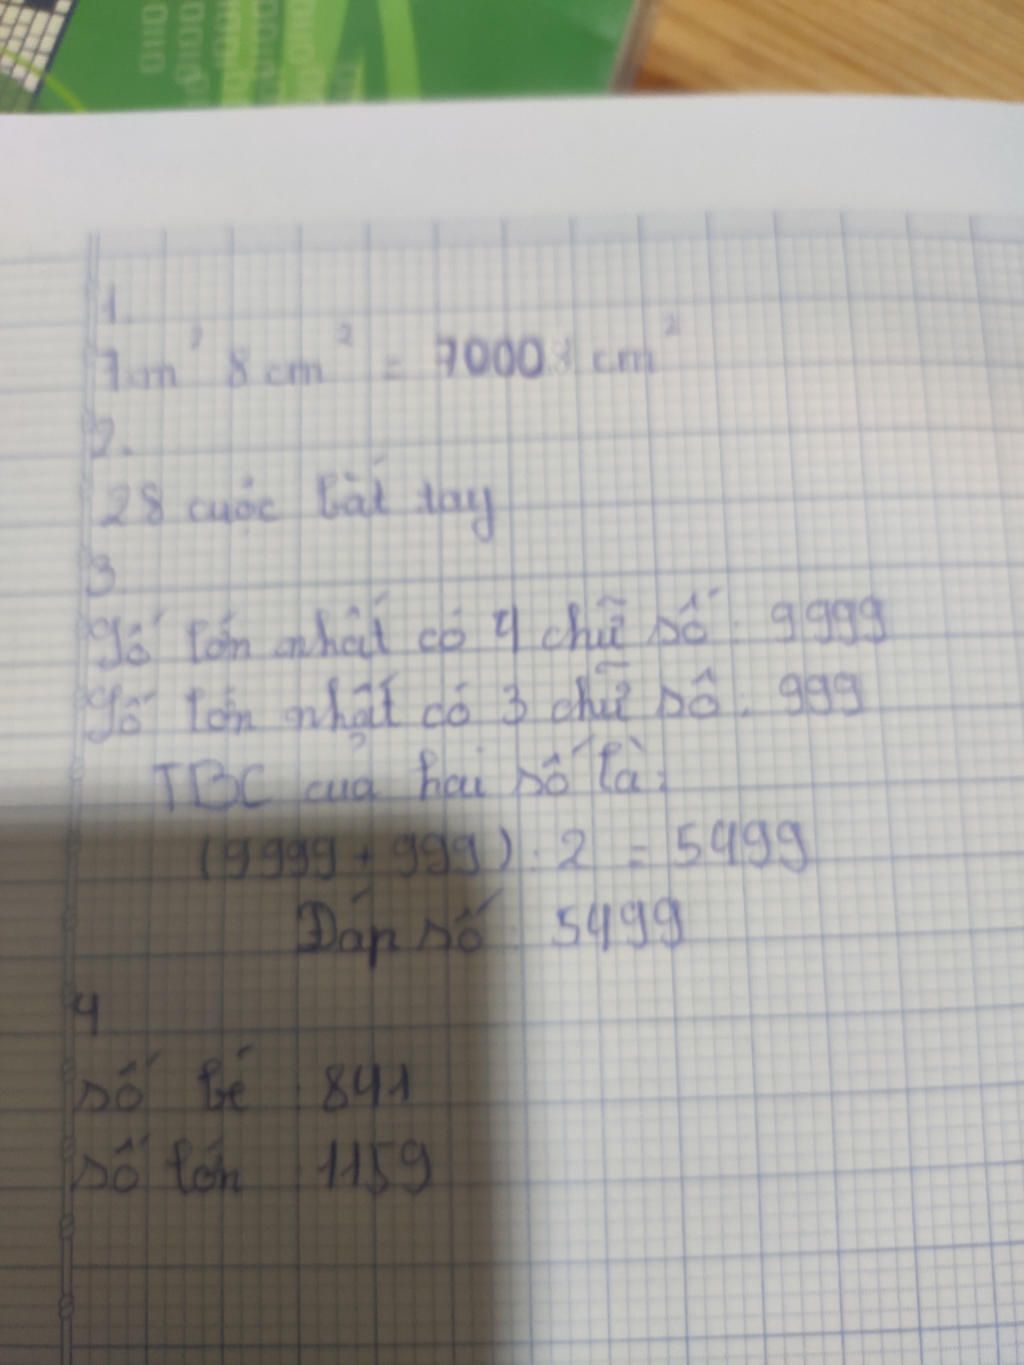 1.
7m² 8cm² = 70008 cm²
2.
28 cuộc bắt tay
3
Số lớn nhất có 4 chữ số : 9999
Số lớn nhất có 3 chữ số : 999
TBC của hai số là:
(9999 + 999) : 2 = 5499
Đáp số : 5499
4
số bé : 841
số lớn : 1159